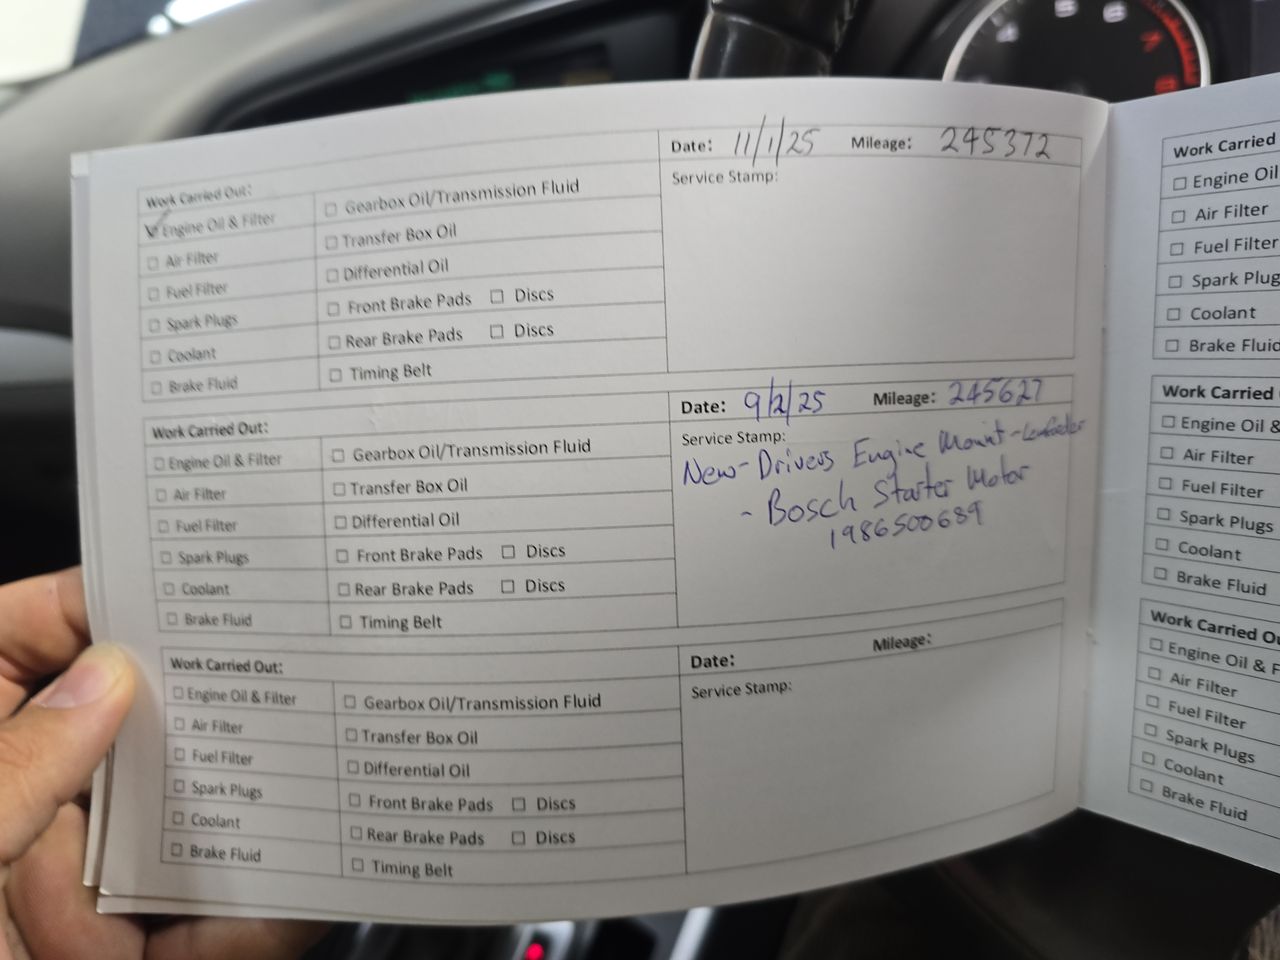 5 6
4 7
8
Date: 11/1/25 Mileage: 245372
Service Stamp:
Work Carried Out:
☑ Engine Oil & Filter ☐ Gearbox Oil/Transmission Fluid
☐ Air Filter ☐ Transfer Box Oil
☐ Fuel Filter ☐ Differential Oil
☐ Spark Plugs ☐ Front Brake Pads ☐ Discs
☐ Coolant ☐ Rear Brake Pads ☐ Discs
☐ Brake Fluid ☐ Timing Belt
Date: 9/2/25 Mileage: 245627
Service Stamp:
New - Drivers Engine Mount - Lemforder
- Bosch Starter Motor
1986S00689
Work Carried Out:
☐ Engine Oil & Filter ☐ Gearbox Oil/Transmission Fluid
☐ Air Filter ☐ Transfer Box Oil
☐ Fuel Filter ☐ Differential Oil
☐ Spark Plugs ☐ Front Brake Pads ☐ Discs
☐ Coolant ☐ Rear Brake Pads ☐ Discs
☐ Brake Fluid ☐ Timing Belt
Date: Mileage:
Service Stamp:
Work Carried Out:
☐ Engine Oil & Filter ☐ Gearbox Oil/Transmission Fluid
☐ Air Filter ☐ Transfer Box Oil
☐ Fuel Filter ☐ Differential Oil
☐ Spark Plugs ☐ Front Brake Pads ☐ Discs
☐ Coolant ☐ Rear Brake Pads ☐ Discs
☐ Brake Fluid ☐ Timing Belt
Work Carried
☐ Engine Oil
☐ Air Filter
☐ Fuel Filter
☐ Spark Plug
☐ Coolant
☐ Brake Fluid
Work Carried
☐ Engine Oil &
☐ Air Filter
☐ Fuel Filter
☐ Spark Plugs
☐ Coolant
☐ Brake Fluid
Work Carried Ou
☐ Engine Oil & F
☐ Air Filter
☐ Fuel Filter
☐ Spark Plugs
☐ Coolant
☐ Brake Fluid